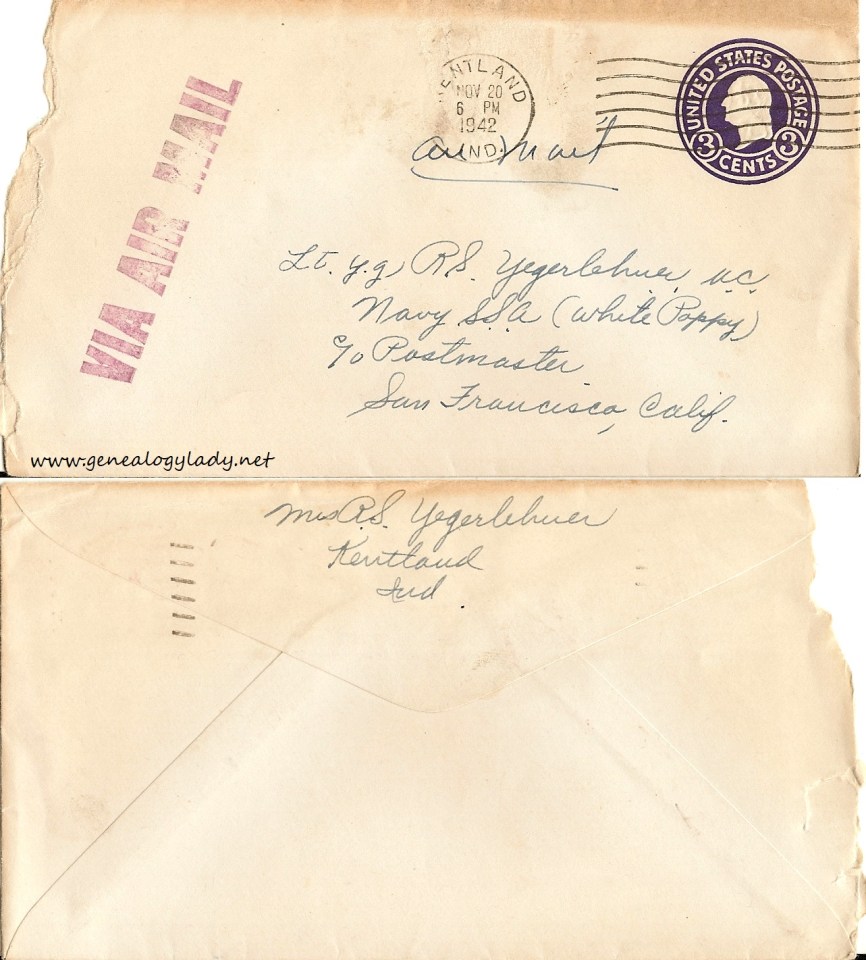 VIA AIR MAIL
KENTLAND
NOV 20
6 PM
1942
IND.
UNITED STATES POSTAGE
3 CENTS 3
Air Mail
Lt. y.g. R.S. Yegerlehner M.C.
Navy SSA (White Poppy)
c/o Postmaster
San Francisco, Calif.
www.genealogylady.net
Mrs R.S. Yegerlehner
Kentland
Ind